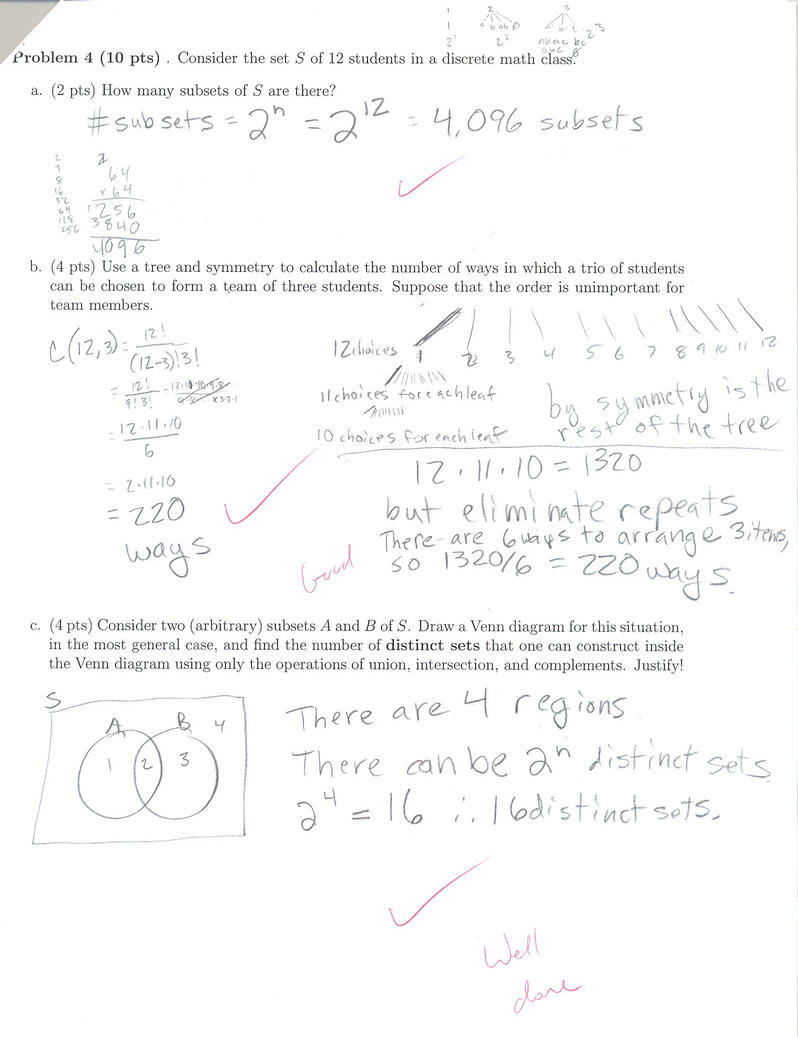 1 2 3
1 a b ab ∅ a b c
2¹ 2² ab ac bc 2³
abc ∅
Problem 4 (10 pts) . Consider the set S of 12 students in a discrete math class.
a. (2 pts) How many subsets of S are there?
# subsets = 2ⁿ = 2¹² = 4,096 subsets
2
4
8
16
32
64
128
256
1
64
x 64
256
3840
4096
b. (4 pts) Use a tree and symmetry to calculate the number of ways in which a trio of students
can be chosen to form a team of three students. Suppose that the order is unimportant for
team members.
C(12,3) = 12! / (12-3)!3!
= 12! / 9!3! = 12·11·10·9·8 / 9·8 x3·2·1
= 12·11·10 / 6
= 2·11·10
= 220
ways
12 choices 1 2 3 4 5 6 7 8 9 10 11 12
11 choices for each leaf
10 choices for each leaf
by symmetry is the
rest of the tree
12 · 11 · 10 = 1320
but eliminate repeats
There are 6 ways to arrange 3 items,
so 1320/6 = 220 ways.
Good
c. (4 pts) Consider two (arbitrary) subsets A and B of S. Draw a Venn diagram for this situation,
in the most general case, and find the number of distinct sets that one can construct inside
the Venn diagram using only the operations of union, intersection, and complements. Justify!
S
A B 4
1 2 3
There are 4 regions
There can be 2ⁿ distinct sets
2⁴ = 16 ∴ 16 distinct sets.
Well
done